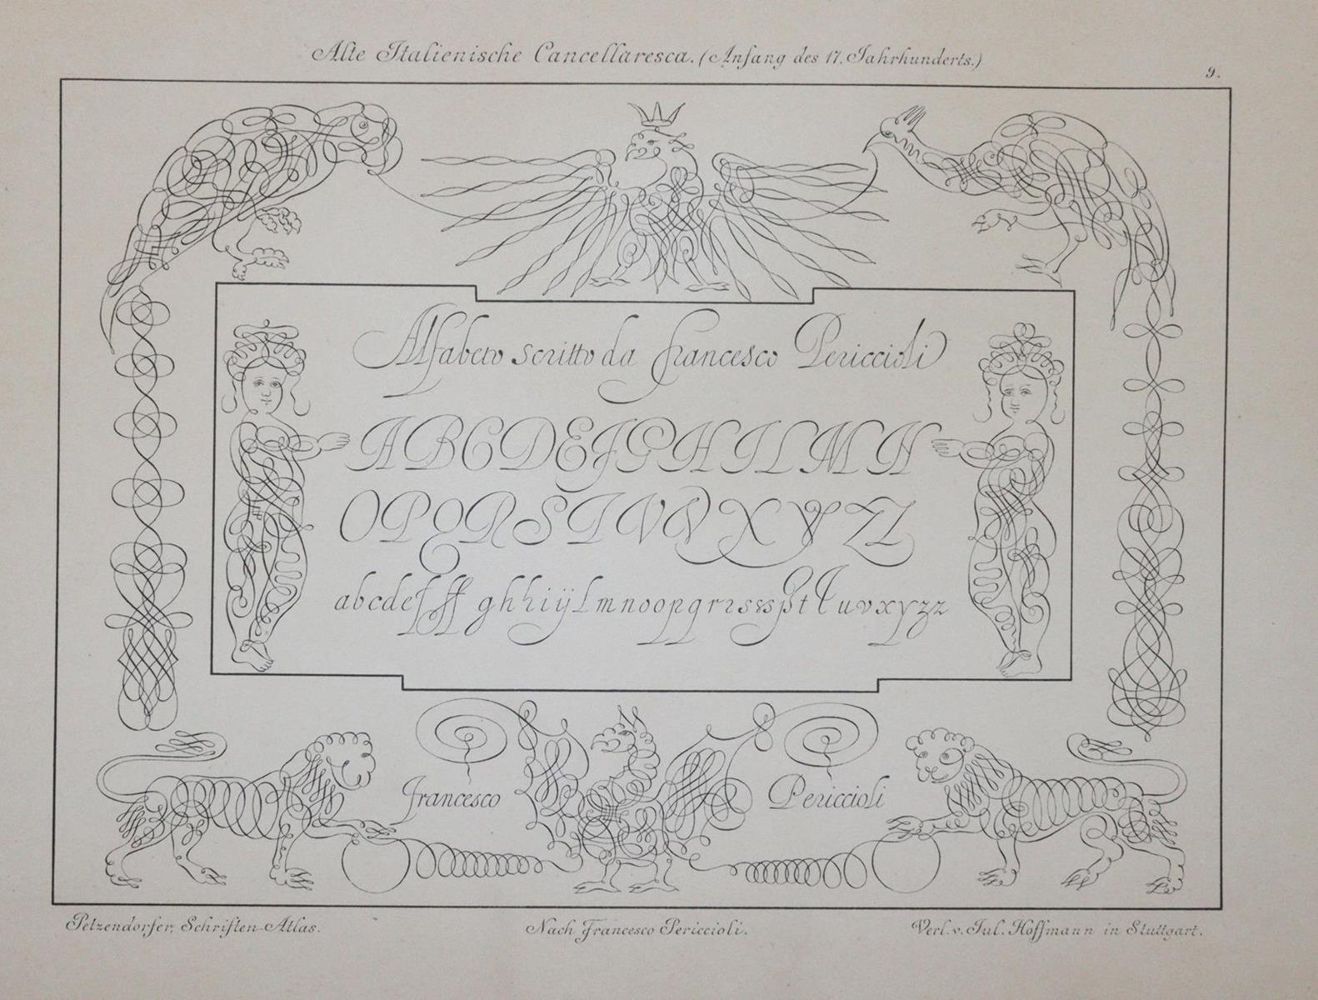 Alte Italienische Cancellaresca. (Anfang des 17. Jahrhunderts.)
9.
Alfabeto scritto da francesco Periccioli
A B C D E F G H I L M N
O P Q R S T V V X Y Z
a b c d e f ff g h h i ij l m n o o p q r r s s s p t t u v x y z z
francesco Periccioli
Petzendorfer, Schriften-Atlas.
Nach Francesco Periccioli.
Verl. v. Jul. Hoffmann in Stuttgart.